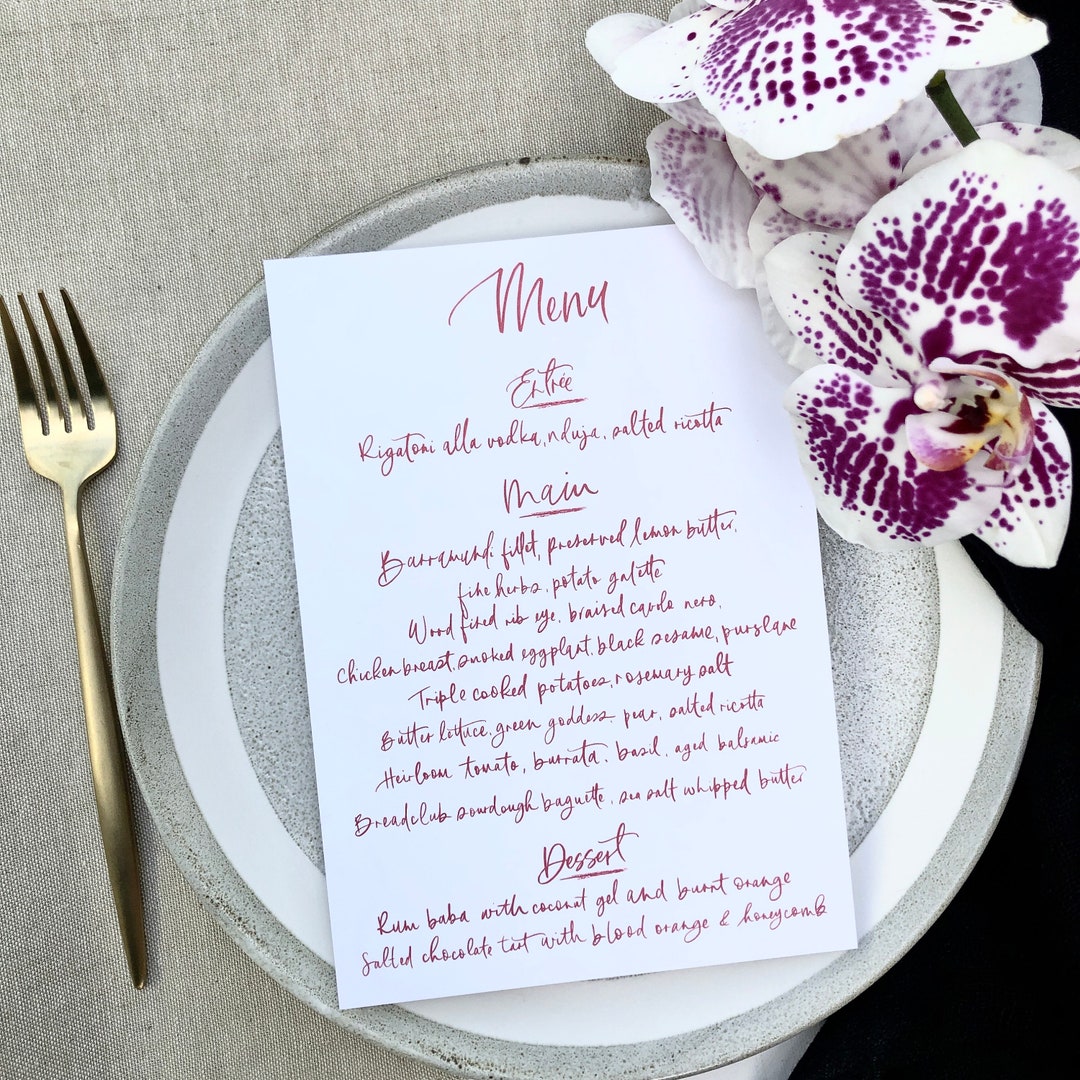 Menu
Entrée
Rigatoni alla vodka, nduja, salted ricotta
Main
Barramundi fillet, preserved lemon butter,
fine herbs, potato galette
Wood fired rib eye, braised cavolo nero,
Chicken breast, smoked eggplant, black sesame, purslane
Triple cooked potatoes, rosemary salt
Butter lettuce, green goddess, pear, salted ricotta
Heirloom tomato, burrata, basil, aged balsamic
Breadclub sourdough baguette, sea salt whipped butter
Dessert
Rum baba with coconut gel and burnt orange
Salted chocolate tart with blood orange & honeycomb